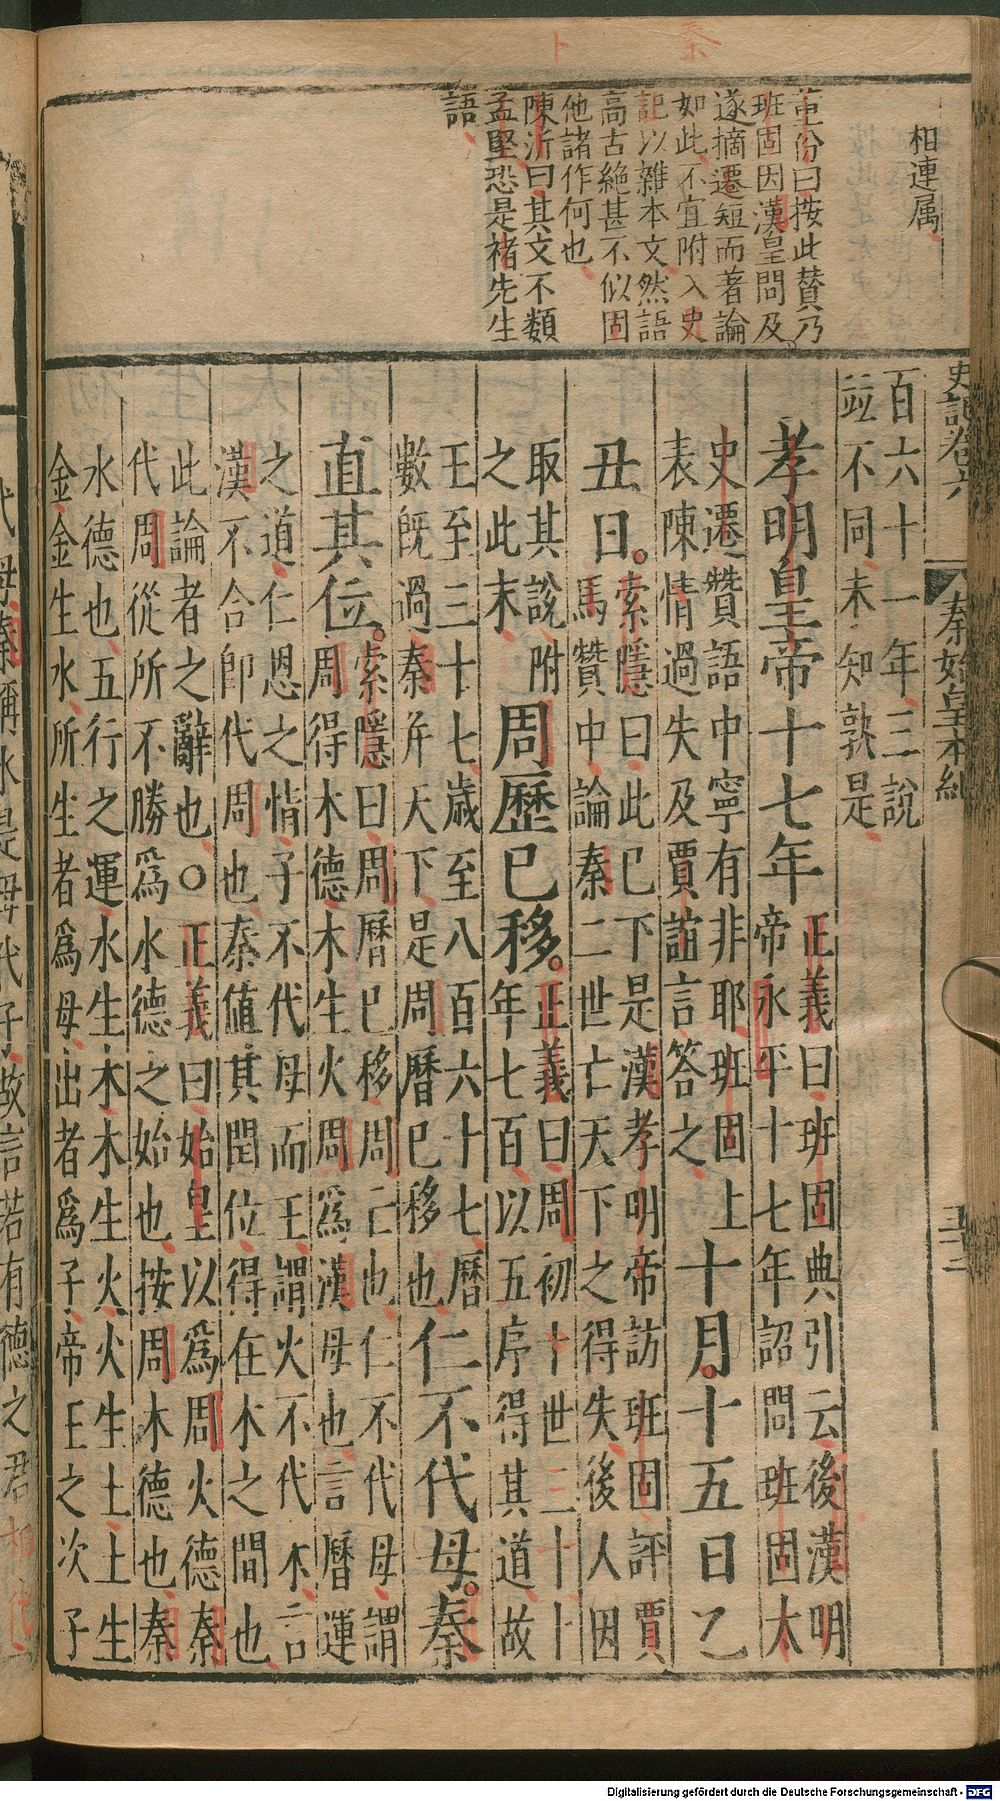 秦
相連属
董份曰按此賛乃
班固因漢皇問及
遂摘遷短而著論
如此不宜附入史
記以雜本文然語
高古絶甚不似固
他諸作何也
陳沂曰其文不類
孟堅恐是褚先生
語
史記卷六 秦始皇本紀
百六十一年三說
並不同未知敦是
孝明皇帝十七年正義曰班固典引云後漢明
帝永平十七年詔問班固太
史遷贊語中寧有非耶班固上
表陳情過失及賈誼言答之十月十五日乙
丑日。索隱曰此已下是漢孝明帝訪班固評賈
馬贊中論秦二世亡天下之得失後人因
取其說附
之此末周歷已移。正義曰周初卜世三十卜
年七百以五序得其道故
王至三十七歲至八百六十七曆
數旣過秦并天下是周曆已移也仁不代母。秦
直其位。索隱曰周曆已移周亡也仁不代母謂
周得木德木生火周爲漢母也言曆運
之道仁恩之情子不代母而王謂火不代木言
漢不合卽代周也秦値其閏位得在木之間也
此論者之辭也○正義曰始皇以爲周火德秦
代周從所不勝爲水德之始也按周木德也秦
水德也五行之運水生木木生火火生土土生
金金生水所生者爲母出者爲子帝王之次子
代母秦稱水是母代子故言若有德之君相代
Digitalisierung gefördert durch die Deutsche Forschungsgemeinschaft - DFG